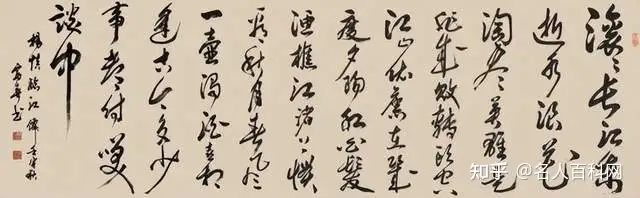 滚滚长江东
逝水浪花
淘尽英雄是
非成败转头空
江山依旧在几
度夕阳红白发
渔樵江渚上惯
看秋月春风
一壶浊酒喜相
逢古今多少
事都付笑
谈中
杨慎临江仙
知乎 @名人百科网